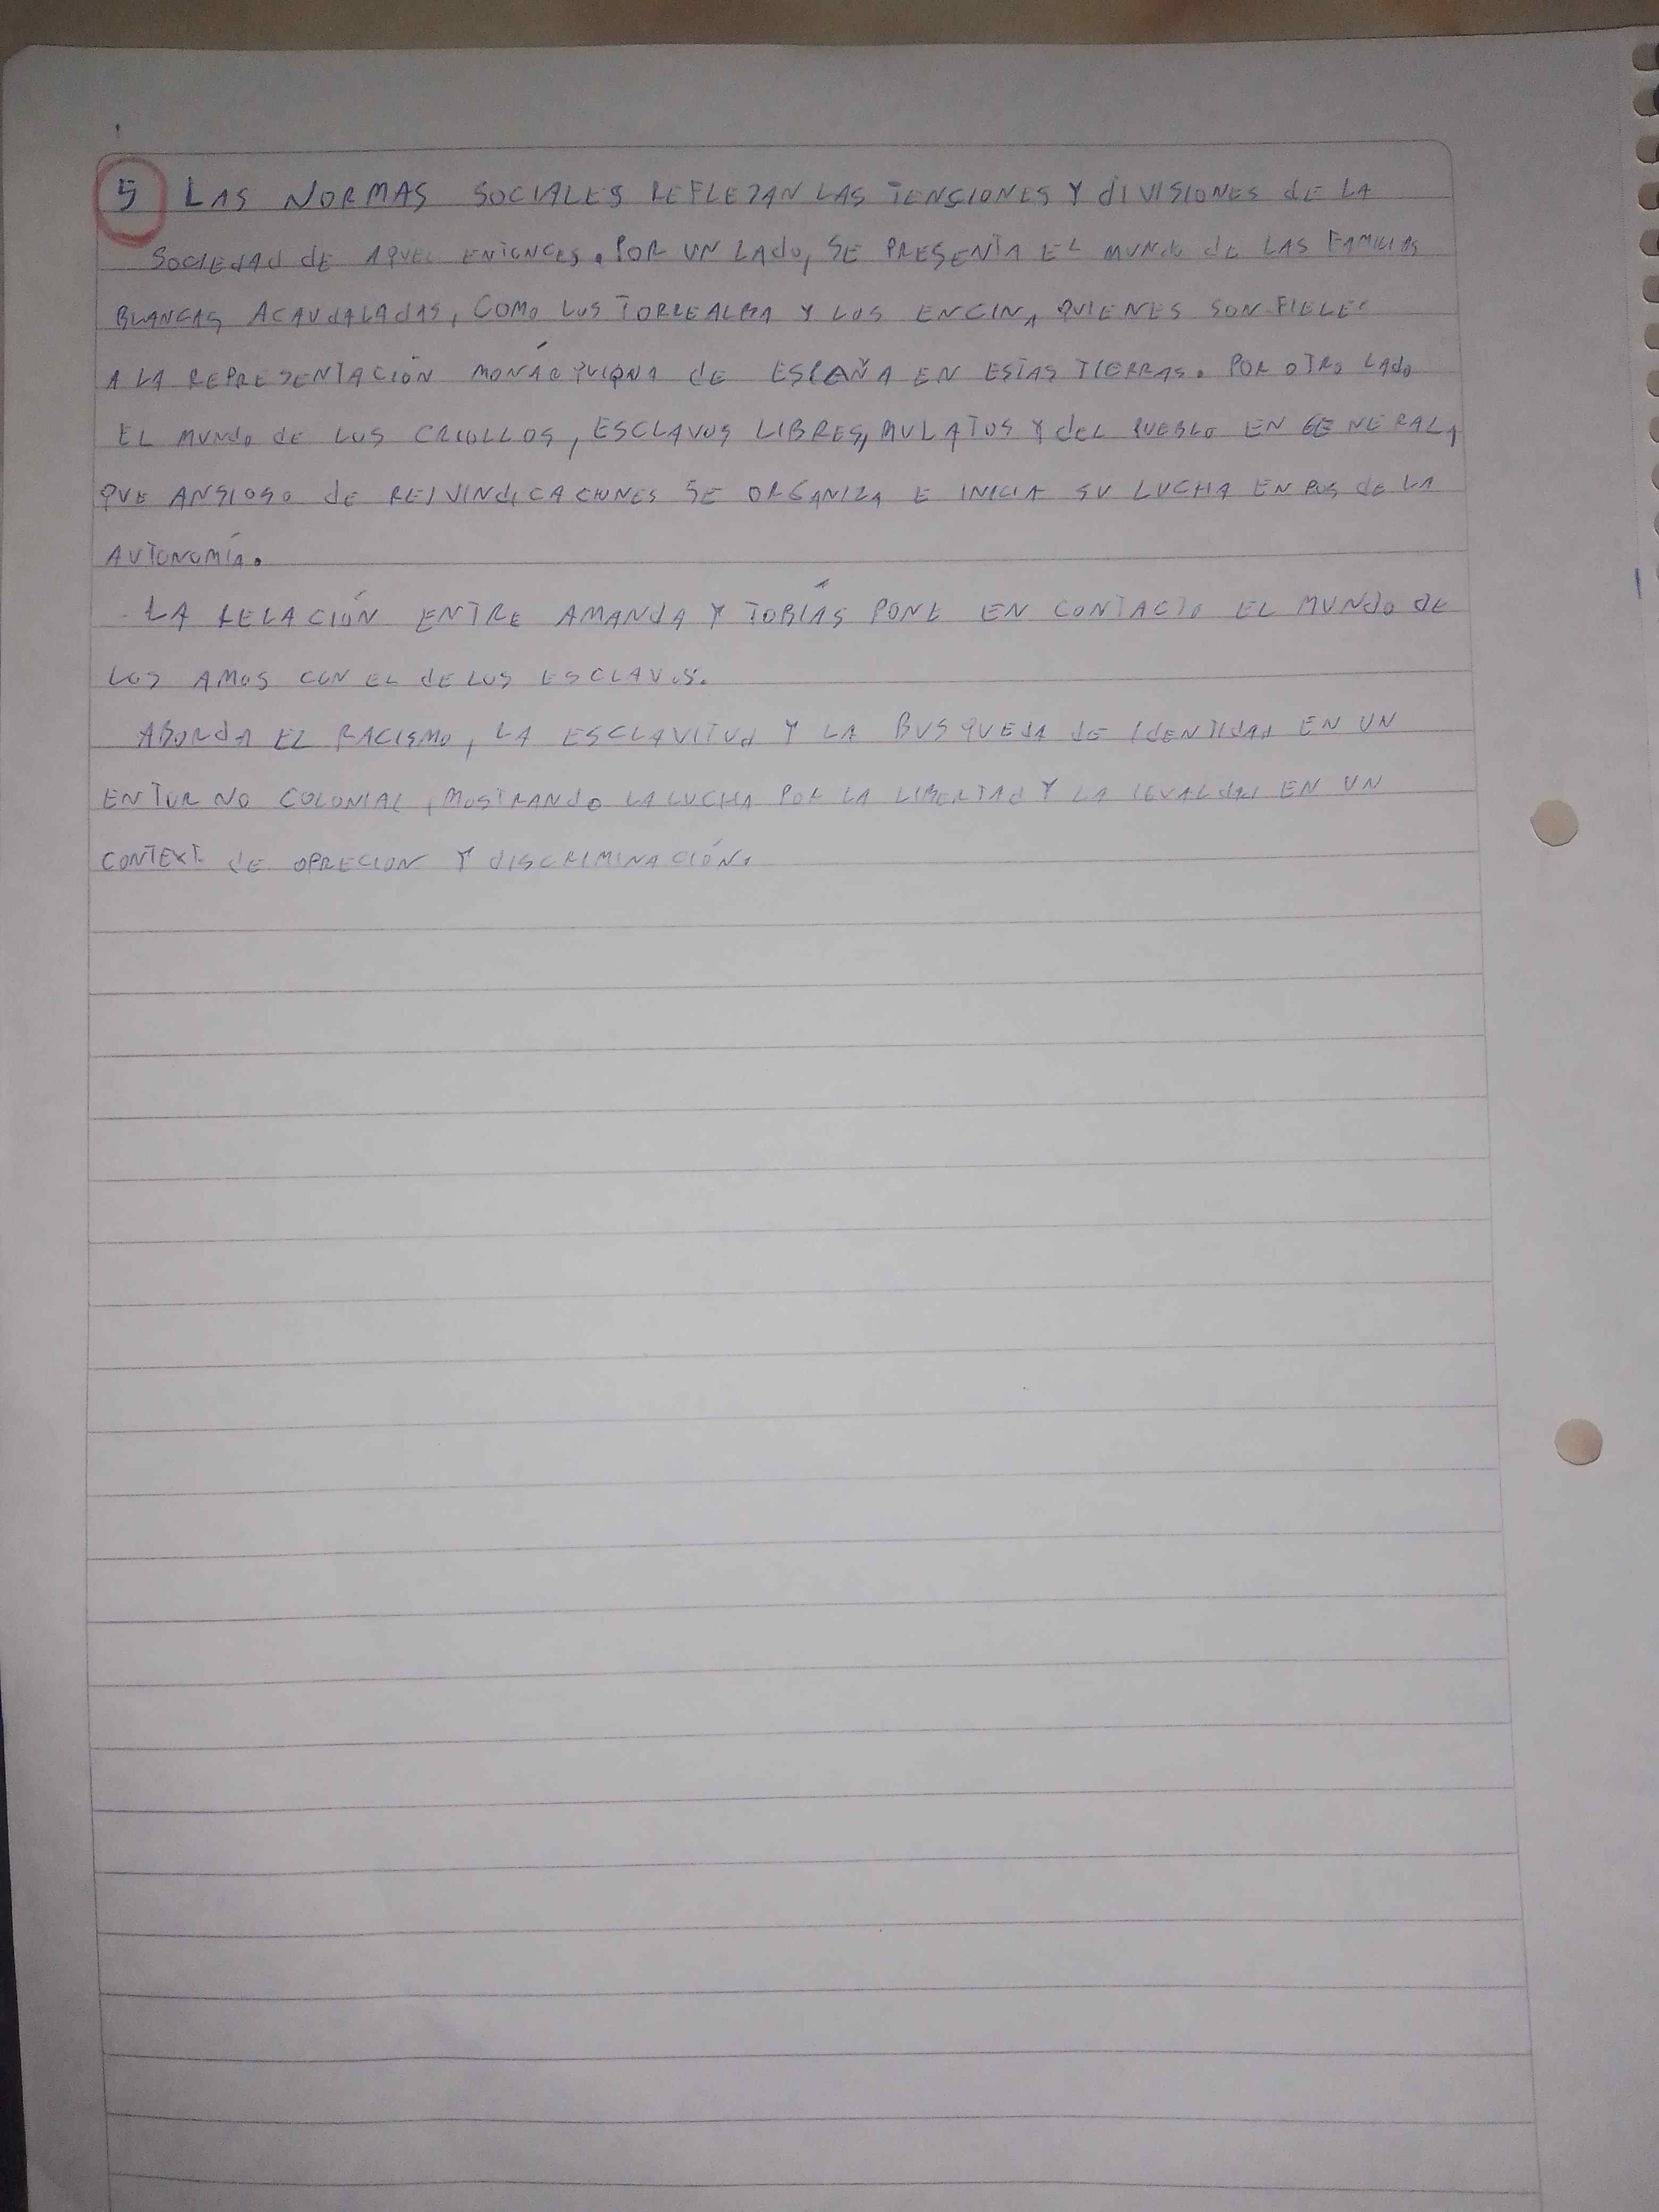 5 LAS NORMAS SOCIALES REFLEJAN LAS TENSIONES Y dIVISIONES dE LA
SOCIEdAd dE AQUEL ENTONCES. POR UN LAdO, SE PRESENTA EL MUNdO dE LAS FAMILIAS
BLANCAS ACAUdALAdAS, COMO LOS TORREALBA Y LOS ENCINA, QUIENES SON FIELES
A LA REPRESENTACIÓN MONÁRQUICA dE ESPAÑA EN ESTAS TIERRAS. POR OTRO LAdO
EL MUNdO dE LOS CRIOLLOS, ESCLAVOS LIBRES, MULATOS Y dEL PUEBLO EN GENERAL,
QUE ANSIOSO dE REIVINdICACIONES SE ORGANIZA E INICIA SU LUCHA EN POS dE LA
AUTONOMÍA.
LA RELACIÓN ENTRE AMANdA Y TOBÍAS PONE EN CONTACTO EL MUNdO dE
LOS AMOS CON EL dE LOS ESCLAVOS.
ABORdA EL RACISMO, LA ESCLAVITUd Y LA BUSQUEdA dE IdENTIdAd EN UN
ENTORNO COLONIAL, MOSTRANdO LA LUCHA POR LA LIBERTAd Y LA IGUALdAd EN UN
CONTEXTO dE OPRECION Y dISCRIMINACIÓN.